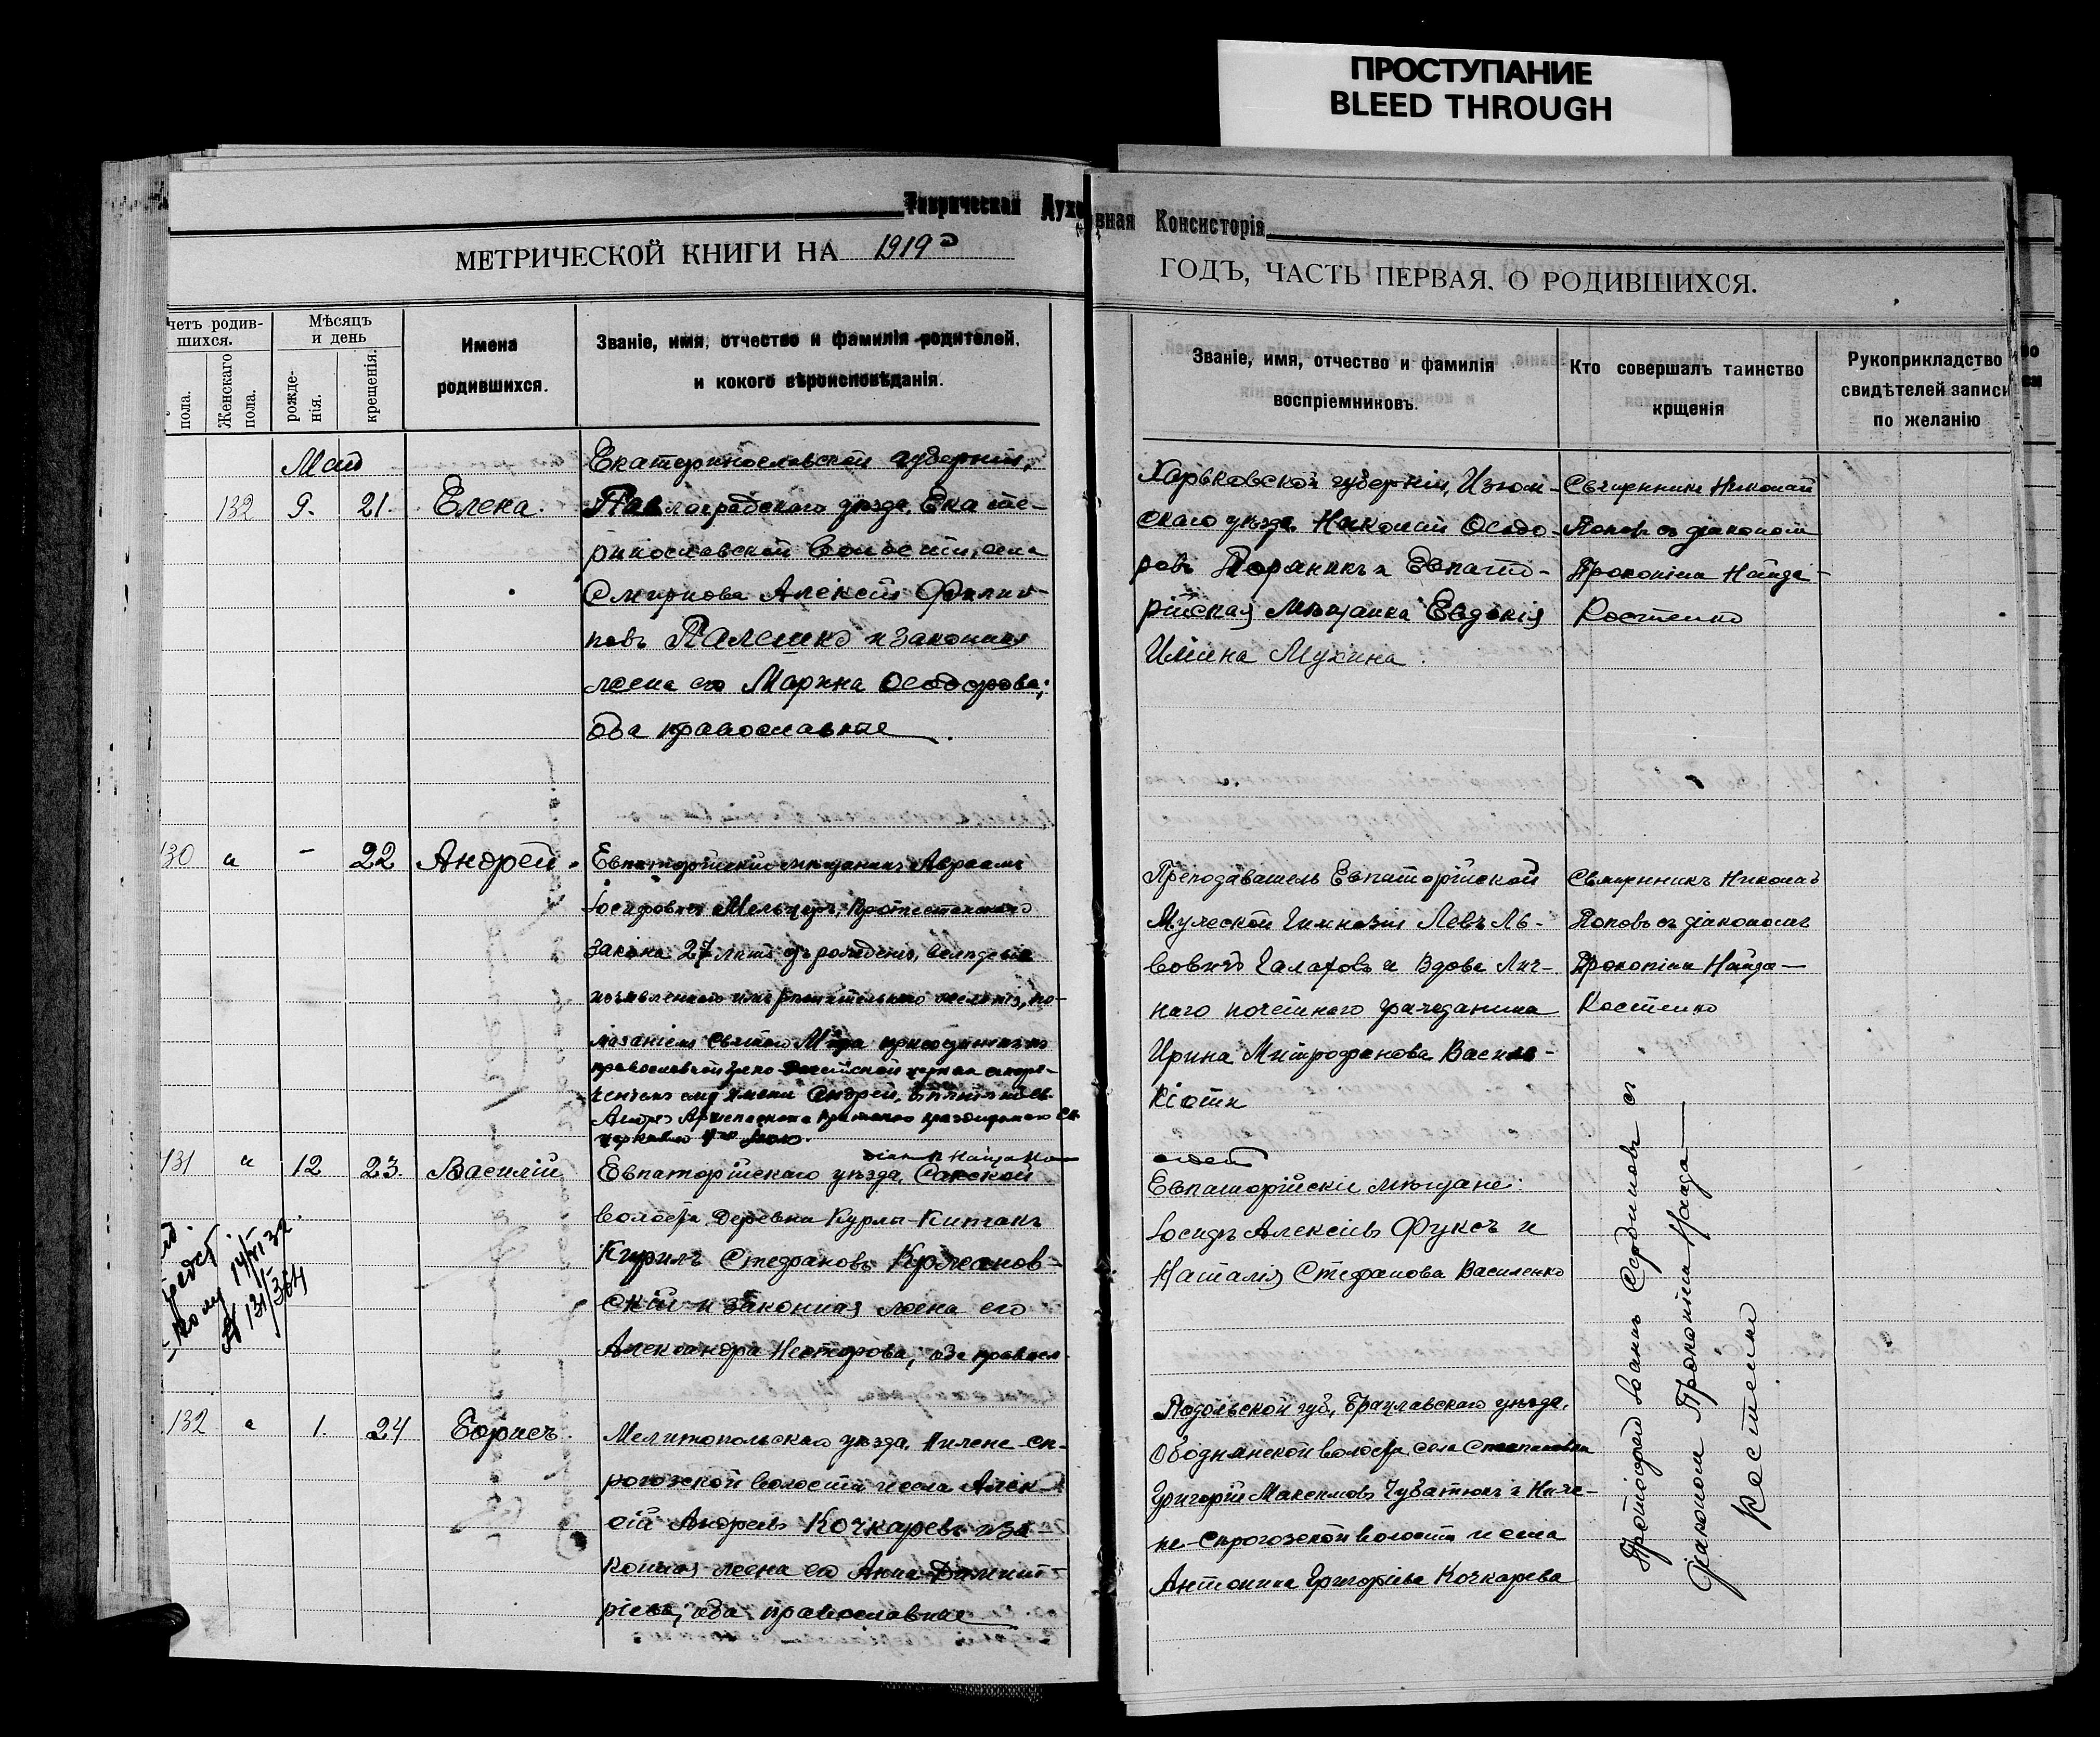 ПРОСТУПАНИЕ
BLEED THROUGH
Таврическая Духовная Консисторія
МЕТРИЧЕСКОЙ КНИГИ НА 1919
ГОДЪ, ЧАСТЬ ПЕРВАЯ, О РОДИВШИХСЯ.
четъ родив-
шихся.
пола.
Женскаго
пола.
Мѣсяцъ
и день
рожде-
нія.
крещенія.
Имена
родившихся.
Званіе, имя, отчество и фамилія родителей,
и кокого вѣроисповѣданія.
Званіе, имя, отчество и фамилія
воспріемниковъ.
Кто совершалъ таинство
крщенія
Рукоприкладство
свидѣтелей записи
по желанію
Май
132 9. 21. Елена.
Екатеринославской губерніи,
Павлоградскаго уѣзда, Екате-
ринославской волости, села
Смирнова Алексій Филип-
повъ Палешко и законная
жена его Марина Ѳеодорова;
оба православные
Харьковской губерніи, Изюм-
скаго уѣзда Николай Ѳеодо-
ровъ и Евпато-
рійская мѣщанка Евдокія
Ильина Мухина.
Священникъ Николай
Поповъ съ діакономъ
Прокопіемъ Найда-
Костенко
130 и - 22 Андрей.
Евпаторійскій мѣщанинъ Авраамъ
Іосифовичъ Мельцеръ, Протестантскаго
закона 27 лѣтъ отъ рожденія, вслѣдствіе
изъявленнаго имъ желанія, по-
мазаніемъ Святаго Мѵра присоединенъ къ
православной Греко-Россійской церкви съ наре-
ченіемъ ему имени Андрей, въ память Св.
церковью 4го Іюля.
Преподаватель Евпаторійской
Мужеской Гимназіи Левъ Ль-
вовичъ Галаховъ и вдова Лич-
наго почетнаго гражданина
Ирина Митрофанова Васили-
кіоти
Священникъ Николай
Поповъ съ діакономъ
Прокопіемъ Найда-
Костенко
131 и 12 23. Василій
Евпаторійскаго уѣзда, Сакской
волости деревни Курлы-Кипчакъ
Кирилъ Стефановъ Коржанов-
скій и законная жена его
Александра Несторова, оба правосл.
Евпаторійски мѣщане:
Іосифъ Алексіевъ Фуксъ и
Наталія Стефанова Василенко
14/VI 32.
№ 131/364
132 и 1. 24 Борисъ.
Мелитопольскаго уѣзда, Нижне-Сѣ-
рогозской волости и села Алек-
сій Андреевъ Кочкаревъ и за-
конная жена его Анна Димит-
ріева, оба православные
Подольской губ., Брацлавскаго уѣзда,
Ободнянской волости села Степановки
Григорій Максимовъ Чубатюкъ и Ниж-
не-Сѣрогозской волости и села
Антонина Григоріева Кочкарева
Протоіерей Іоаннъ Сербиновъ съ
діакономъ Прокопіемъ Найда-
Костенко